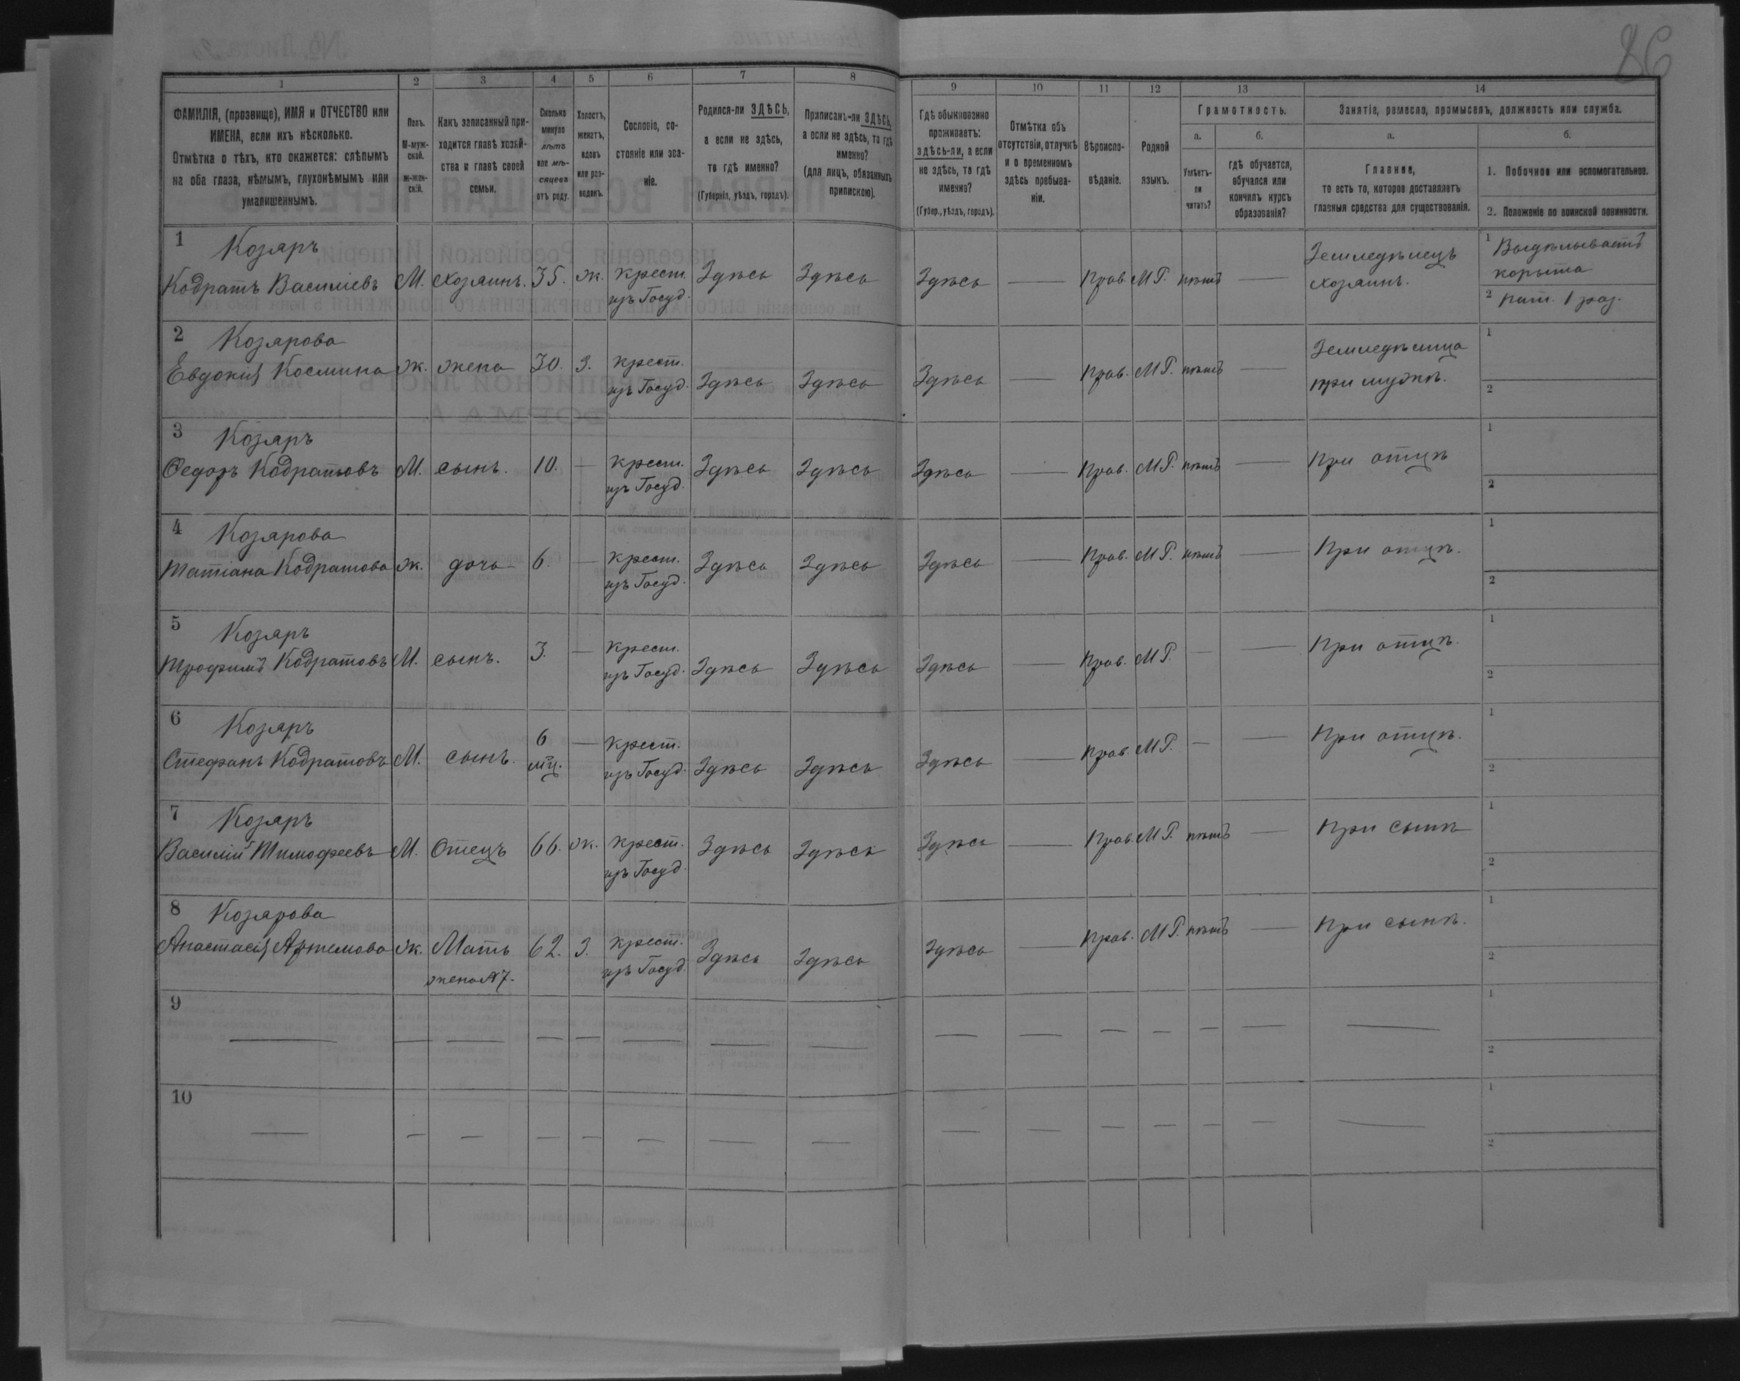 86
1 2 3 4 5 6 7 8 9 10 11 12 13 14
ФАМИЛІЯ, (прозвище), ИМЯ и ОТЧЕСТВО или
ИМЕНА, если ихъ нѣсколько.
Отмѣтка о тѣхъ, кто окажется: слѣпымъ
на оба глаза, нѣмымъ, глухонѣмымъ или
умалишеннымъ.
Полъ.
М-муж-
ской.
Ж-жен-
скій.
Какъ записанный при-
ходится главѣ хозяй-
ства и главѣ своей
семьи.
Сколько
минуло
лѣтъ
или мѣ-
сяцевъ
отъ роду.
Холостъ,
женатъ,
вдовъ
или раз-
веденъ.
Сословіе, со-
стояніе или зва-
ніе.
Родился-ли ЗДѢСЬ,
а если не здѣсь,
то гдѣ именно?
(Губернія, уѣздъ, городъ).
Приписанъ-ли ЗДѢСЬ,
а если не здѣсь, то гдѣ
именно?
(для лицъ, обязанныхъ
припискою).
Гдѣ обыкновенно
проживаетъ:
здѣсь-ли, а если
не здѣсь, то гдѣ
именно?
(Губер., уѣздъ, городъ).
Отмѣтка объ
отсутствіи, отлучкѣ
и о временномъ
здѣсь пребыва-
ніи.
Вѣроиспо-
вѣданіе.
Родной
языкъ.
Грамотность.
а.
Умѣетъ-
ли
читать?
б.
гдѣ обучается,
обучался или
кончилъ курсъ
образованія?
Занятіе, ремесло, промыселъ, должность или служба.
а.
Главное,
то есть то, которое доставляетъ
главныя средства для существованія.
б.
1. Побочное или вспомогательное.
2. Положеніе по воинской повинности.
1 Козяръ
Кодратъ Василіевъ М. хозяинъ. 35. ж. крест. изъ Госуд. Здѣсь Здѣсь Здѣсь — Прав. М Р. нѣтъ — Земледѣлецъ хозяинъ.
1 Выдѣлываетъ корыта
2 рат. 1 раз.
2 Козярова
Евдокія Космина ж. жена 30. з. крест. изъ Госуд. Здѣсь Здѣсь Здѣсь — Прав. М Р. нѣтъ — Земледѣлица при мужѣ.
1
2
3 Козяръ
Ѳедоръ Кодратовъ М. сынъ. 10. — крест. изъ Госуд. Здѣсь Здѣсь Здѣсь — Прав. М Р. нѣтъ — При отцѣ
1
2
4 Козярова
Татіана Кодратова ж. дочь 6. — крест. изъ Госуд. Здѣсь Здѣсь Здѣсь — Прав. М Р. нѣтъ — При отцѣ.
1
2
5 Козяръ
Трофимъ Кодратовъ М. сынъ. 3. — крест. изъ Госуд. Здѣсь Здѣсь Здѣсь — Прав. М Р. — — При отцѣ.
1
2
6 Козяръ
Стефанъ Кодратовъ М. сынъ. 6 мц. — крест. изъ Госуд. Здѣсь Здѣсь Здѣсь — Прав. М Р. — — При отцѣ.
1
2
7 Козяръ
Василій Тимофеевъ М. Отецъ 66. ж. крест. изъ Госуд. Здѣсь Здѣсь Здѣсь — Прав. М Р. нѣтъ — При сынѣ
1
2
8 Козярова
Анастасія Артемова ж. Мать жена №7. 62. з. крест. изъ Госуд. Здѣсь Здѣсь Здѣсь — Прав. М Р. нѣтъ — При сынѣ.
1
2
9 — — — — — — — — — — — — — — —
1
2
10 — — — — — — — — — — — — — — —
1
2